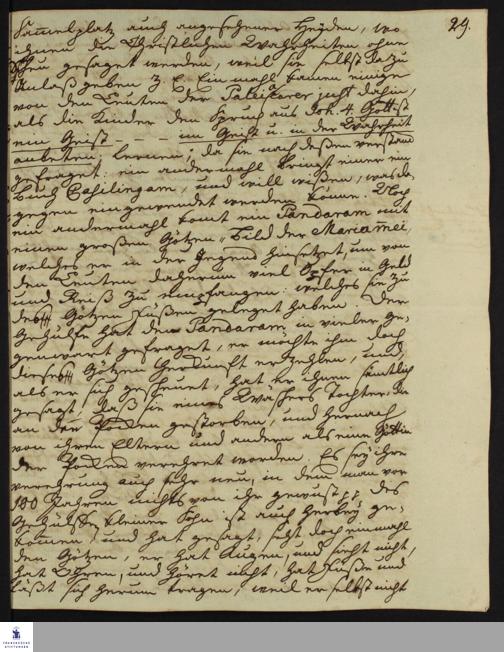 29.
Samelplatz auch angesehener Heyden, wo
ihnen die Christlichen Wahrheiten ohne
Scheu gesaget werden, weil sie selbst dazu
Anlaß geben z. E. Einmahl kamen einige
von den Leuten der Paleiacarer just dahin,
als die Kinder den Spruch aus Joh. 4. Gott ist
ein Geist - - im Geist u. in der Wahrheit
anbeten, lernen, da sie nach deßen verstand
gefraget: ein andermahl bringt einer ein
Buch Casilingam, und will wißen, was da-
gegen eingewendet werden könne. Noch
ein andermahl komt ein Pandaram mit
einem großen Götzen-Bild der Mariammei,
welches er in der Gegend hinsetzet, um von
den Leuten daherum viel Opfer in Geld
und Reiß zu empfangen: welches sie zu
des Götzen Füßen geleget haben. Der
Gehülfe hat den Pandaram, in vieler ge-
genwart gefraget, er möchte ihm doch
dieses Götzen Herkunft erzehlen, und,
als er sich gescheuet, hat er ihnen sämtlich
gesagt, daß sie eines Wäschers Tochter, die
an der Pocken gestorben, und hernach
von ihren Eltern und andern als eine Göttin
der Pocken verehret worden. Es sey ihre
verehrung auch sehr neu, in dem man vor
100 Jahren nichts von ihr gewust pp. Des
Gehülfen kleiner Sohn ist auch herbey ge-
komen, und hat gesagt, seht doch einmahl
den Götzen, er hat Augen, und sieht nicht,
hat Ohren, und höret nicht, hat Füße und
läßt sich herum tragen, weil er selbst nicht
FRANCKESCHE
STIFTUNGEN